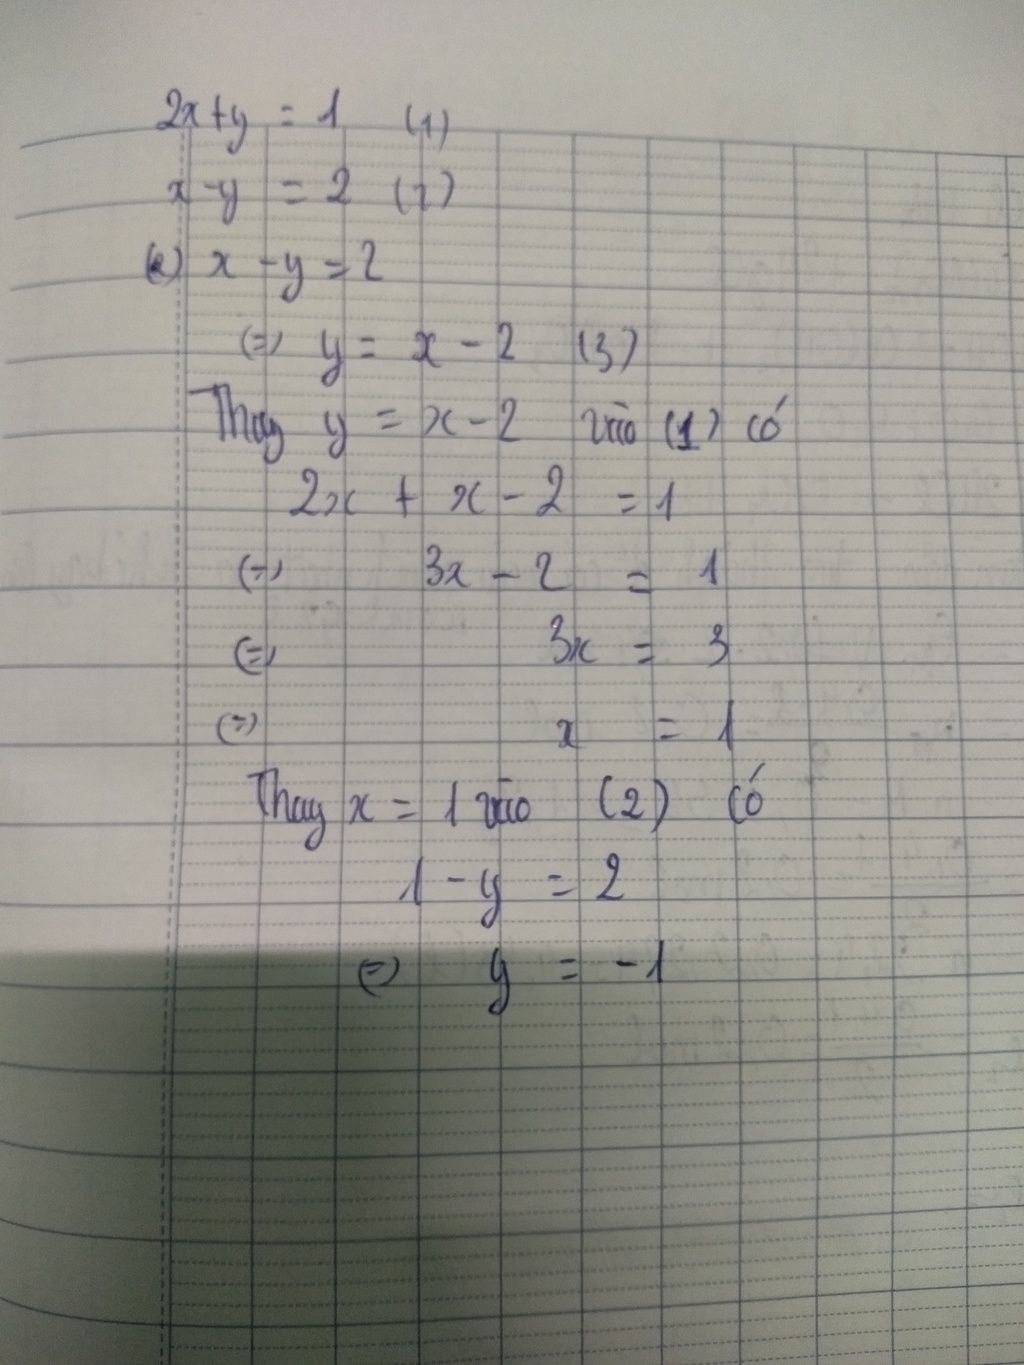 2x + y = 1 (1)
x - y = 2 (2)
(2) x - y = 2
(=) y = x - 2 (3)
Thay y = x - 2 vào (1) có
2x + x - 2 = 1
(=) 3x - 2 = 1
(=) 3x = 3
(=) x = 1
Thay x = 1 vào (2) có
1 - y = 2
(=) y = -1